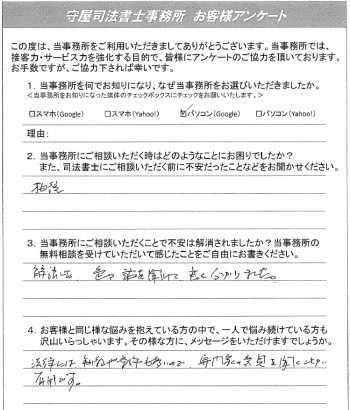 守屋司法書士事務所　お客様アンケート
この度は、当事務所をご利用いただきましてありがとうございます。当事務所では、
接客力・サービス力を強化する目的で、皆様にアンケートのご協力を頂いております。
お手数ですが、ご協力下されば幸いです。
1. 当事務所を何でお知りになり、なぜ当事務所をお選びいただきましたか。
＜当事務所をお知りになった媒体のチェックボックスにチェックをお願いいたします。＞
□スマホ(Google)　□スマホ(Yahoo!)　☑パソコン(Google)　□パソコン(Yahoo!)
理由:
2. 当事務所にご相談いただく時はどのようなことにお困りでしたか？
また、司法書士にご相談いただく前に不安だったことなどをお聞かせください。
相続
3. 当事務所にご相談いただくことで不安は解消されましたか？当事務所の
無料相談を受けていただいて感じたことをご自由にお書きください。
解消した。色々話を聞けて良く分かりました。
4. お客様と同じ様な悩みを抱えている方の中で、一人で悩み続けている方も
沢山いらっしゃいます。その様な方に、メッセージをいただけますでしょうか。
法律には
も多いので専門家の意見を聞くことが
有用です。